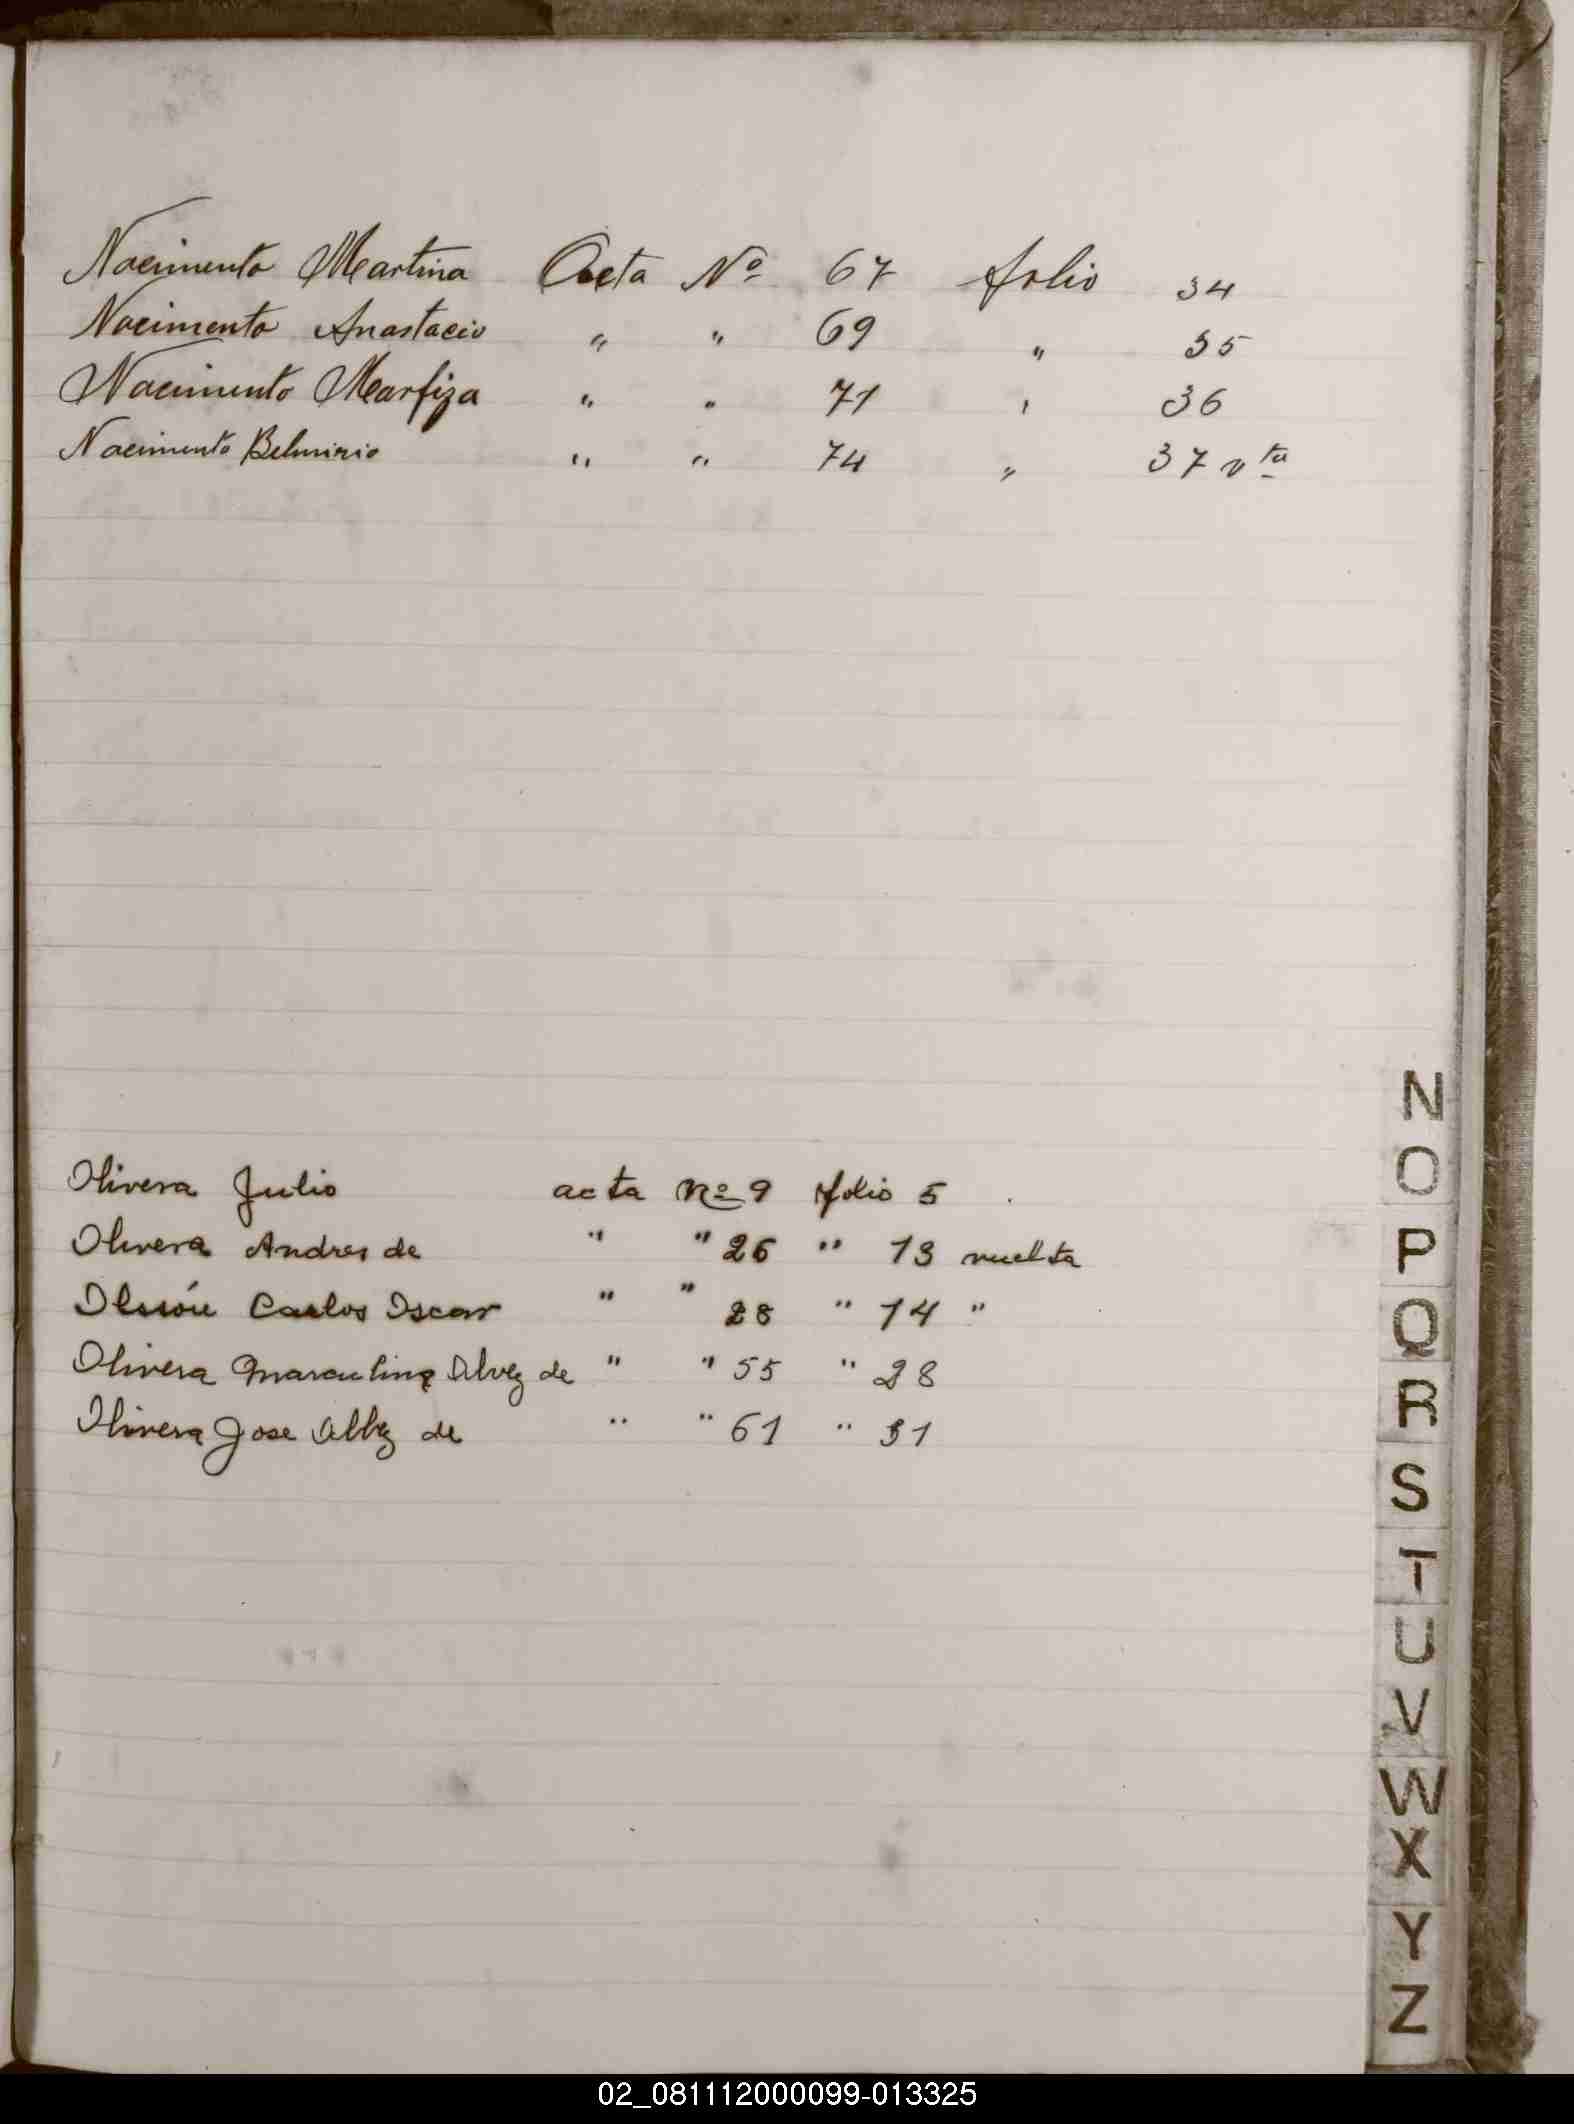 Nacimento Martina Acta Nº 67 folio 34
Nacimento Anastacio " " 69 " 35
Nacimento Marfiza " " 71 " 36
Nacimento Belmirio " " 74 " 37 vta
Olivera Julio acta Nº 9 folio 5
Olivera Andres de " " 26 " 13 vuelta
Olssón Carlos Oscar " " 28 " 14 "
Olivera Marculina Alvez de " " 55 " 28
Olivera Jose Alvez de " " 61 " 31
N
O
P
Q
R
S
T
U
V
W
X
Y
Z
02_081112000099-013325